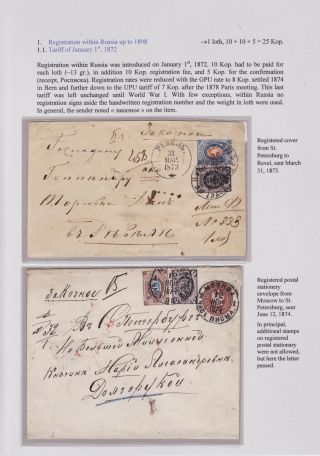 1. Registration within Russia up to 1898 →1 loth, 10 + 10 + 5 = 25 Kop.
1.1. Tariff of January 1st, 1872
Registration within Russia was introduced on January 1st, 1872. 10 Kop. had to be paid for
each loth (~13 gr.), in addition 10 Kop. registration fee, and 5 Kop. for the confirmation
(receipt, Росписка). Registration rates were reduced with the GPU rate to 8 Kop. settled 1874
in Bern and further down to the UPU tariff of 7 Kop. after the 1878 Paris meeting. This last
tariff was left unchanged until World War I. With few exceptions, within Russia no
registration signs aside the handwritten registration number and the weight in loth were used.
In general, the sender noted « заказное » on the item.
Registered cover
from St.
Petersburg to
Revel, sent March
31, 1873.
Заказное
Господину
2458
РЕВЕЛЬ
31
МАР.
1873
Торговый Домъ
№ 333
въ Ревелѣ
1 лот
Registered postal
stationery
envelope from
Moscow to St.
Petersburg, sent
June 12, 1874.
In principal,
additional stamps
on registered
postal stationery
were not allowed,
but here the letter
passed.
Заказное
МОСКВА
1874
Въ С. Петербургъ
На Большой Милліонной
Княгинѣ Маріи Александровнѣ
Долгорукой